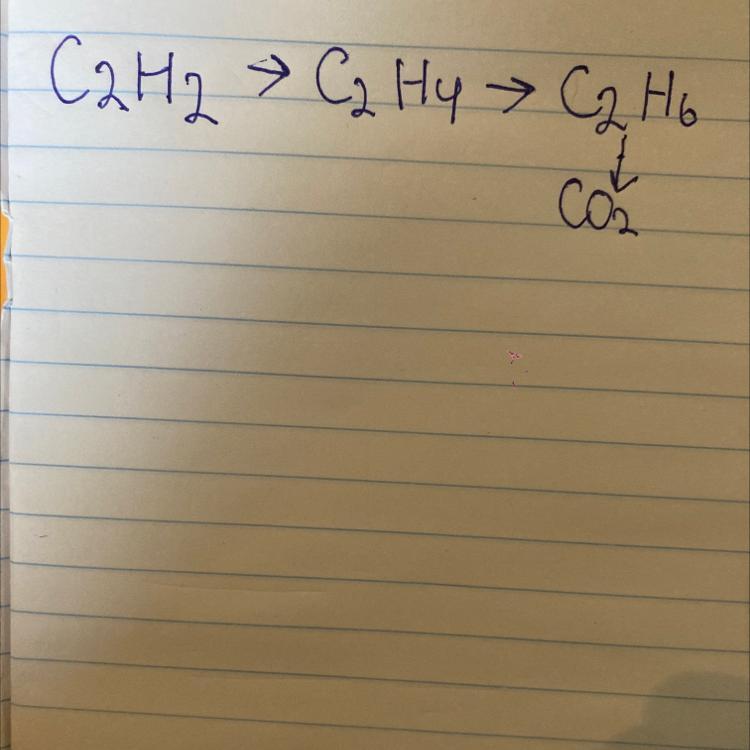 C2H2 → C2H4 → C2H6
↓
CO2